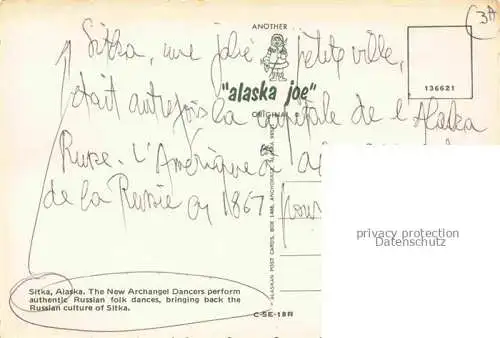 3A
ANOTHER
Sitka, une jolie petite ville,
"alaska joe"
136621
était autrefois la capitale de l'Alaska
ORIGINAL
Russe. L'Amérique a
de la Russie en 1867 pour
privacy protection
Datenschutz
Sitka, Alaska. The New Archangel Dancers perform
authentic Russian folk dances, bringing back the
Russian culture of Sitka.
C-SE-18R
ALASKAN POST CARDS, BOX 1498, ANCHORAGE, ALASKA